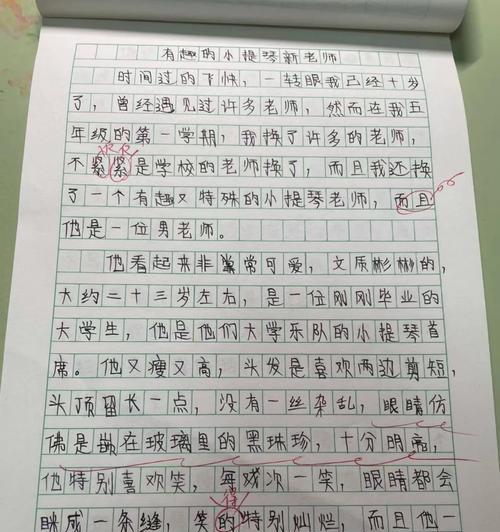 有趣的小提琴新老师
时间过的飞快，一转眼我已经十岁
了，曾经遇见过许多老师，然而在我五
年级的第一学期，我换了许多的老师，
不紧紧是学校的老师换了，而且我还换
了一个有趣又特殊的小提琴老师，而且
他是一位男老师。
他看起来非常可爱，文质彬彬的，
大约二十三岁左右，是一位刚刚毕业的
大学生，他是他们大学乐队的小提琴首
席。他又瘦又高，头发是喜欢两边剪短，
头顶留长一点，没有一丝杂乱，眼睛仿
佛是嵌在玻璃里的黑珠珍，十分明亮，
他特别喜欢笑，每次一笑，眼睛都会
眯成一条缝，笑的特别灿烂，而且他一